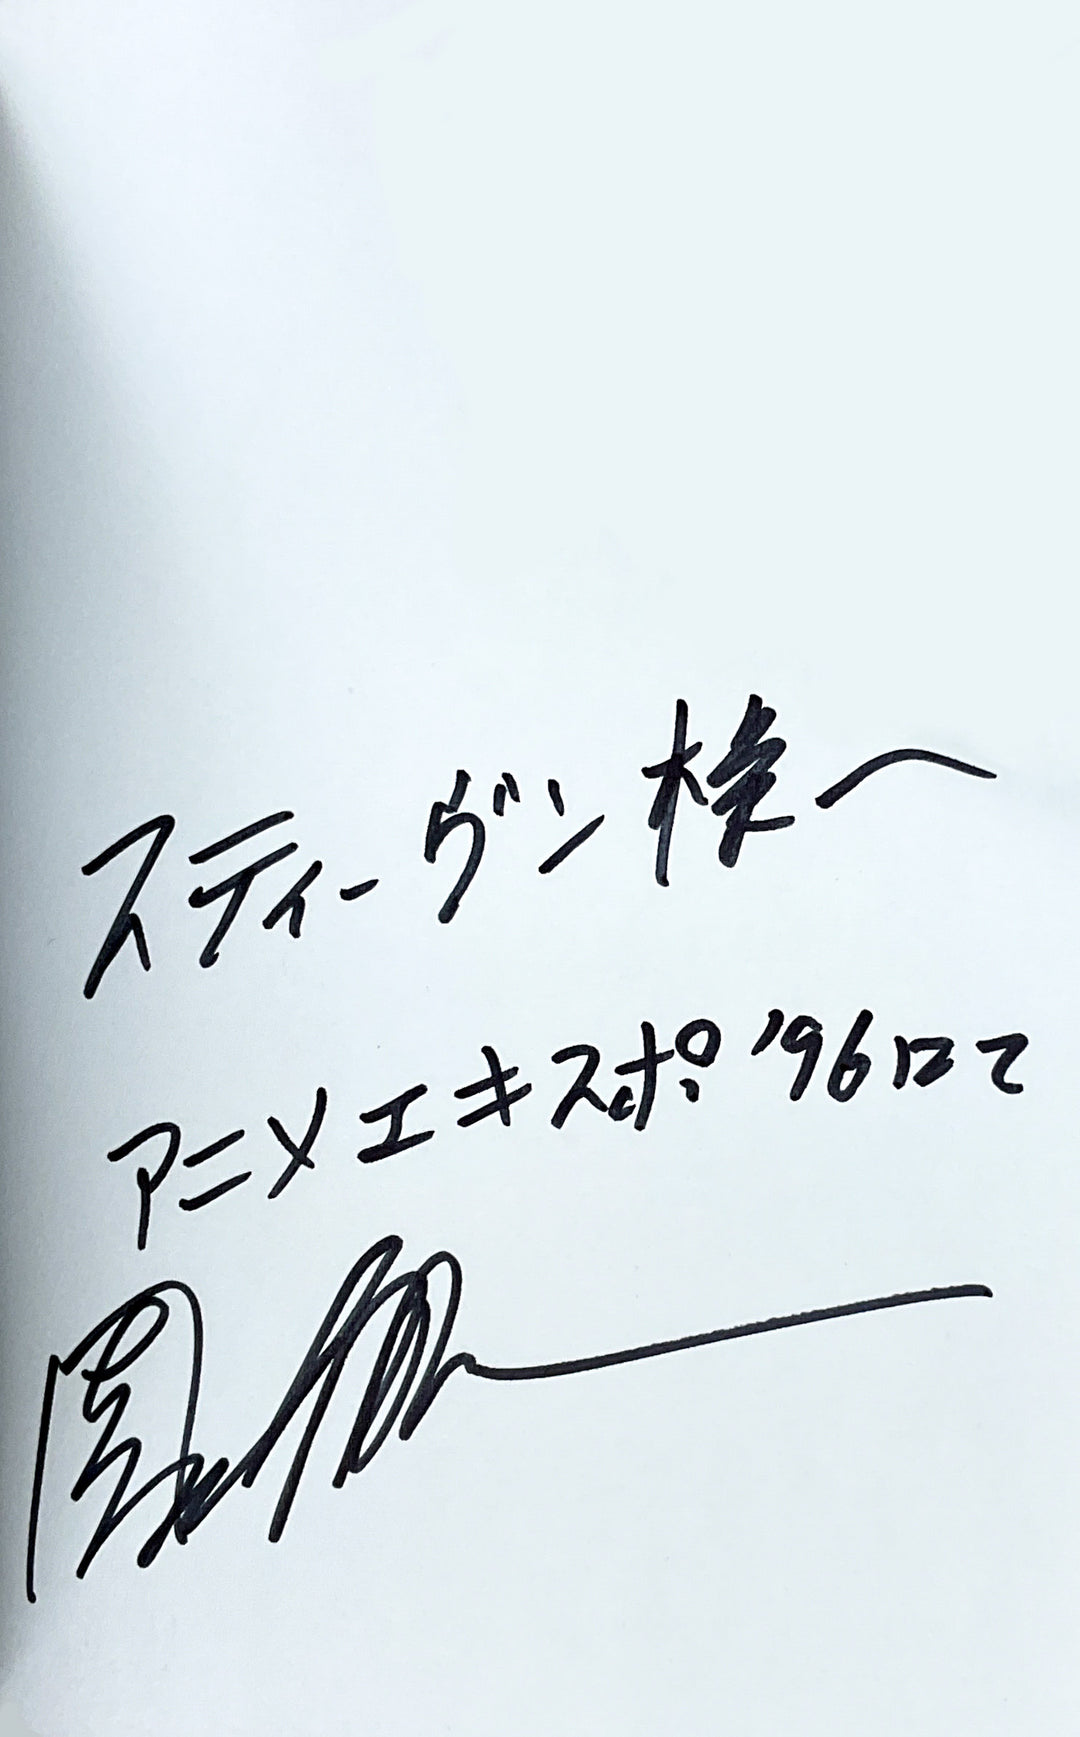 スティーヴン様へ
アニメエキスポ '96にて